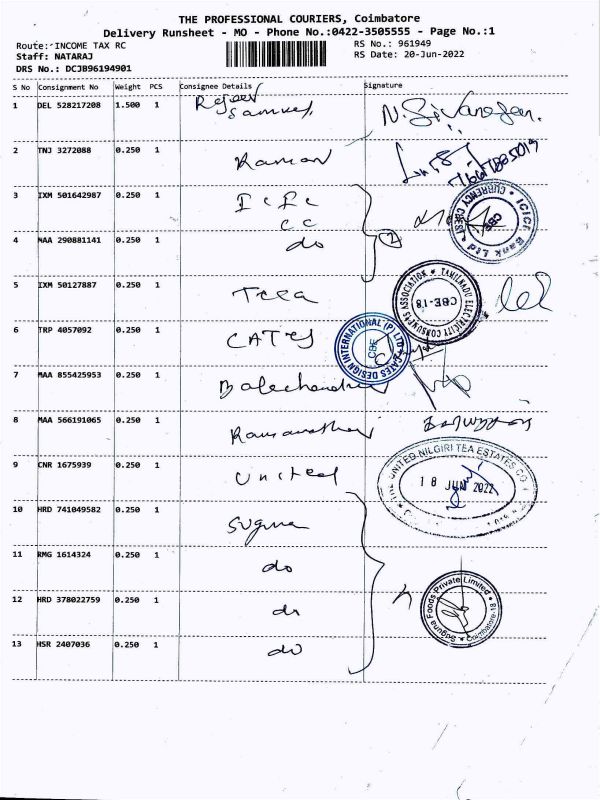 THE PROFESSIONAL COURIERS, Coimbatore
Delivery Runsheet - MO - Phone No.:0422-3505555 - Page No.:1
Route: INCOME TAX RC
RS No.: 961949
Staff: NATARAJ
RS Date: 20-Jun-2022
DRS No.: DCJB96194901
S No Consignment No Weight PCS Consignee Details Signature
1 DEL 528217208 1.500 1 Rajeev Samuel
N. Sivanesan.
2 TNJ 3272088 0.250 1 Raman
3 IXM 501642987 0.250 1 ICIC
CC
ICICI Bank Ltd CURRENCY CHEST CBE
4 MAA 290881141 0.250 1 do 2
5 IXM 50127887 0.250 1 Teca
TAMILNADU ELECTRICITY CONSUMERS ASSOCIATION CBE-18
6 TRP 4057092 0.250 1 CATES
CATES DESIGN INTERNATIONAL (P) LTD CBE
7 MAA 855425953 0.250 1 Balachandra
8 MAA 566191065 0.250 1 Ramanathan
9 CNR 1675939 0.250 1 United
THE UNITED NILGIRI TEA ESTATES CO.
18 JUN 2022
10 HRD 741049582 0.250 1 Suguna
11 RMG 1614324 0.250 1 do
12 HRD 378022759 0.250 1 do
Suguna Foods Private Limited Coimbatore-18
13 HSR 2407036 0.250 1 do